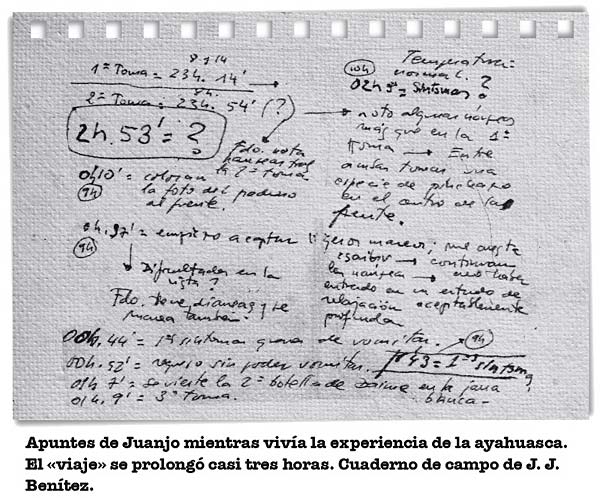 8 y 14
1ª Toma = 23h. 14'
8h.
2ª Toma = 23h. 54' (?)
2h. 53' = ?
Fdo. nota
nauseas tras
la 2ª toma
0h 10' = colocan
9h
la foto del poderoso
al frente.
0h. 27' = empiezo a captar
9h
Dificultades en la
vista?
Fdo. tiene nauseas y se
marea también.
Temperatura:
normal. ?
10h
02h 5' = Síntomas?
noto algunas náuseas
más que en la 1ª
toma → Entre
ambas tomas una
especie de pinchazo
en el centro de la
frente.
ligeros mareos; me cuesta
escribir → continúan
las náuseas → creo haber
entrado en un estado de
relajación aceptablemente
profunda
00h. 44' = 1º síntoma grave de vomitar. → 9h
00h. 52' = regreso sin poder vomitar.
43 = 1ºs síntomas
01h 7' = se vierte la 2ª botella de Daime en la jarra
blanca-
01h. 9' = 3ª Toma.
Apuntes de Juanjo mientras vivía la experiencia de la ayahuasca.
El «viaje» se prolongó casi tres horas. Cuaderno de campo de J. J.
Benítez.